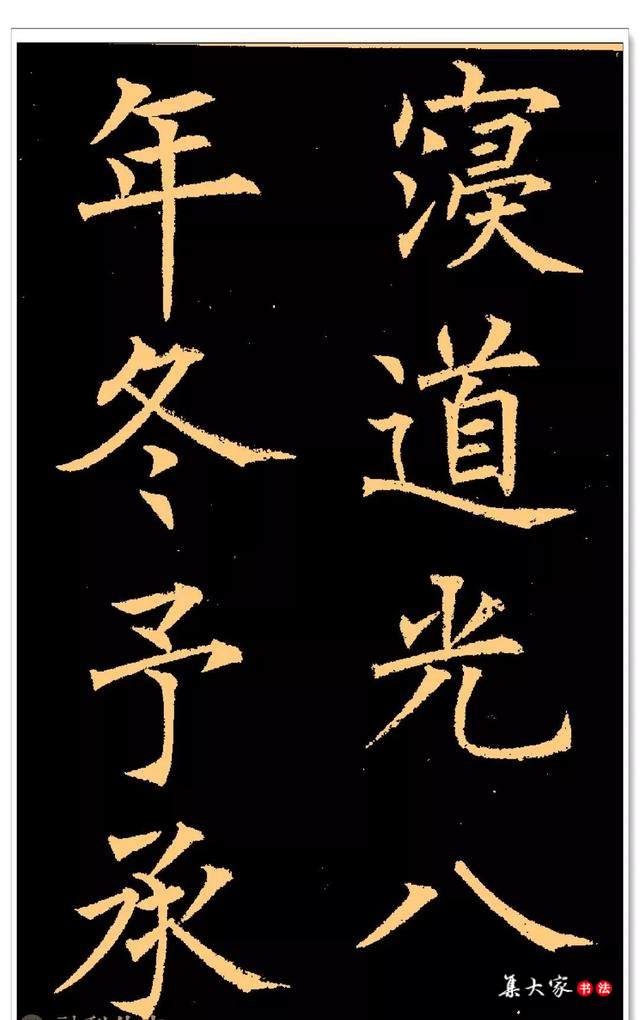 寖道光八
年冬予承
集大家书法